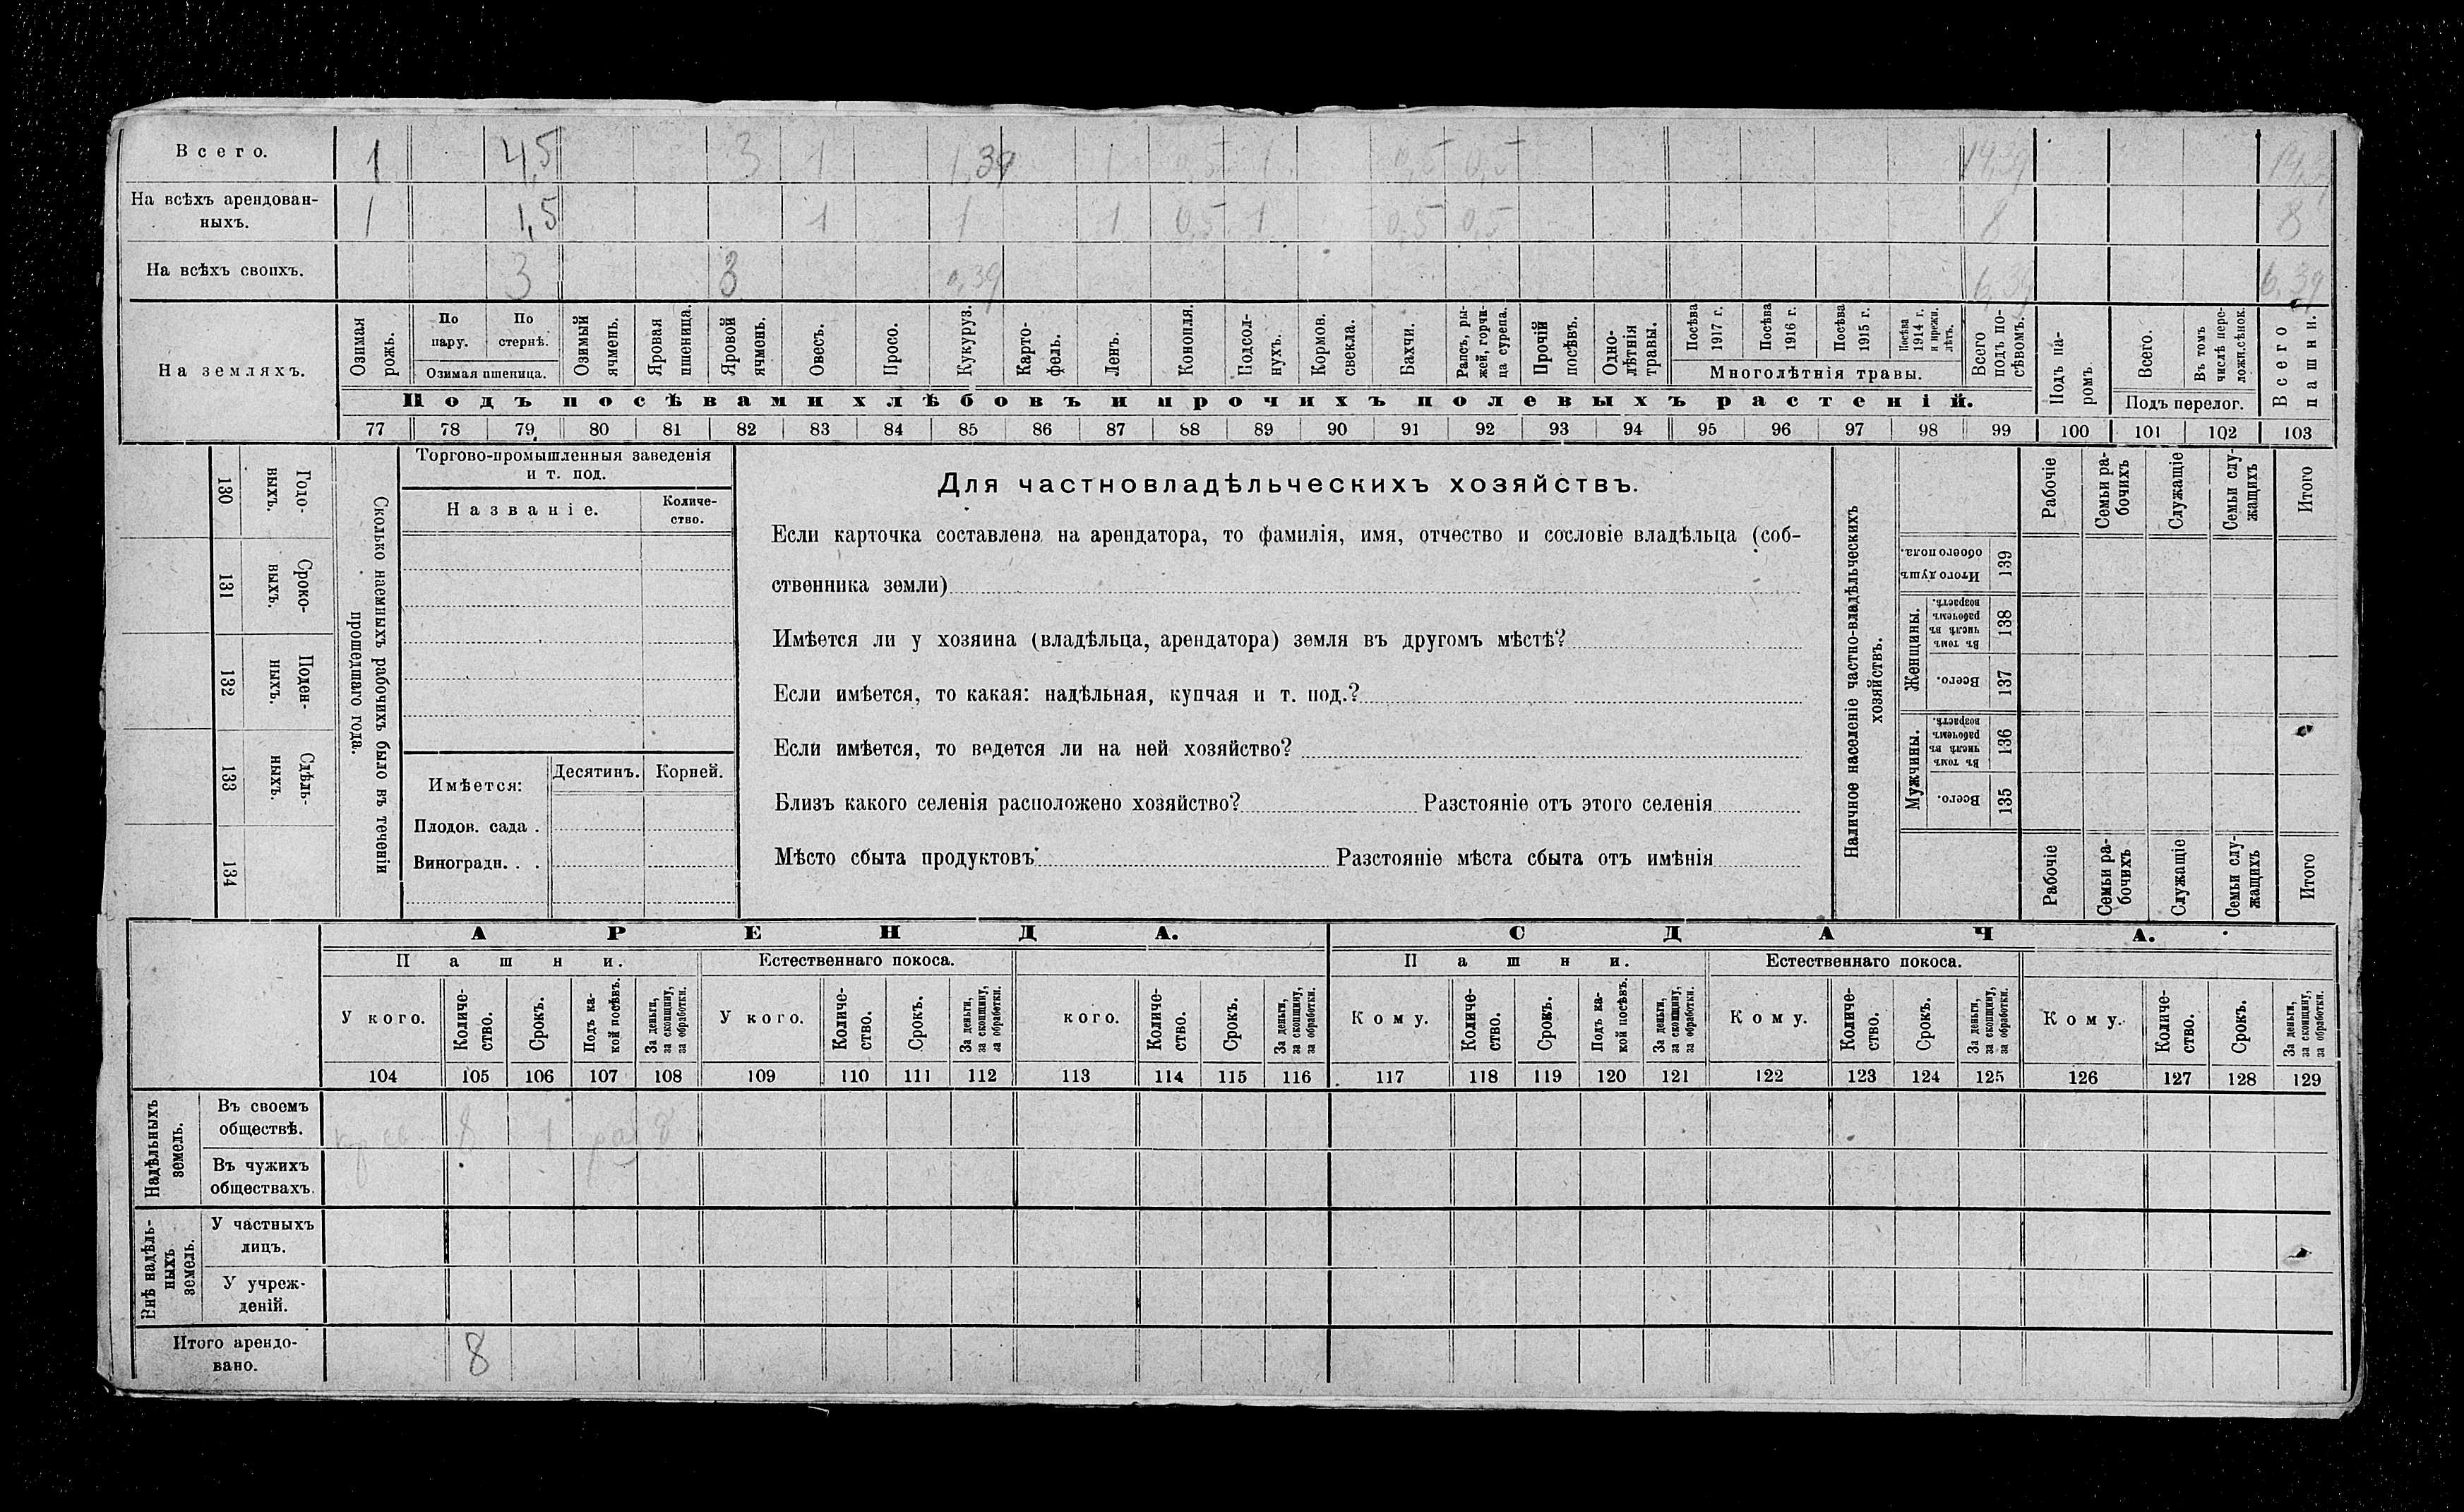 Всего. 1 4,5 3 1 1,39 1 0,5 1 0,5 0,5 14,39 14,39
На всѣхъ арендован-
ныхъ. 1 1,5 1 1 1 0,5 1 0,5 0,5 8 8
На всѣхъ своихъ. 3 3 0,39 6,39 6,39
На земляхъ.
Озимая рожь.
По пару.
По стернѣ.
Озимая пшеница.
Озимый ячмень.
Яровая пшеница.
Яровой ячмень.
Овесъ.
Просо.
Кукуруз.
Карто-
фель.
Ленъ.
Конопля.
Подсол-
нухъ.
Кормов. свекла.
Бахчи.
Рапсъ, ры-
жей, горчи-
ца сурепа.
Прочій посѣвъ.
Одно-
лѣтнія травы.
Посѣва 1917 г.
Посѣва 1916 г.
Посѣва 1915 г.
Посѣва 1914 г. и прежн. лѣтъ.
Многолѣтнія травы.
Всего подъ по-
сѣвомъ.
Подъ посѣвами хлѣбовъ и прочихъ полевыхъ растеній.
Подъ па-
ромъ.
Всего.
Въ томъ числѣ пере-
ложн. сѣнок.
Подъ перелог.
Всего пашни.
77 78 79 80 81 82 83 84 85 86 87 88 89 90 91 92 93 94 95 96 97 98 99 100 101 102 103
130 Годо-
выхъ.
131 Сроко-
выхъ.
132 Поден-
ныхъ.
133 Сдѣль-
ныхъ.
134
Сколько наемныхъ рабочихъ было въ теченіи
прошедшаго года.
Торгово-промышленныя заведенія
и т. под.
Названіе.
Количе-
ство.
Имѣется: Десятинъ. Корней.
Плодов. сада .
Виноградн. . .
Для частновладѣльческихъ хозяйствъ.
Если карточка составлена на арендатора, то фамилія, имя, отчество и сословіе владѣльца (соб-
ственника земли)
Имѣется ли у хозяина (владѣльца, арендатора) земля въ другомъ мѣстѣ?
Если имѣется, то какая: надѣльная, купчая и т. под.?
Если имѣется, то ведется ли на ней хозяйство?
Близъ какого селенія расположено хозяйство? Разстояніе отъ этого селенія
Мѣсто сбыта продуктовъ Разстояніе мѣста сбыта отъ имѣнія
Наличное населеніе частно-владѣльческихъ
хозяйствъ.
Рабочіе
Семьи ра-
бочихъ
Служащіе
Семьи слу-
жащихъ
Итого
Итого душъ обоего пола. 139
Женщины.
Въ томъ числѣ въ рабочемъ возрастѣ. 138
Всего. 137
Мужчины.
Въ томъ числѣ въ рабочемъ возрастѣ. 136
Всего. 135
Рабочіе
Семьи ра-
бочихъ
Служащіе
Семьи слу-
жащихъ
Итого
АРЕНДА. СДАЧА.
Пашни. Естественнаго покоса. Пашни. Естественнаго покоса.
У кого.
Количе-
ство.
Срокъ.
Подъ ка-
кой посѣвъ.
За деньги, за скопщину, за обработки.
У кого.
Количе-
ство.
Срокъ.
За деньги, за скопщину, за обработки.
кого.
Количе-
ство.
Срокъ.
За деньги, за скопщину, за обработки.
Кому.
Количе-
ство.
Срокъ.
Подъ ка-
кой посѣвъ.
За деньги, за скопщину, за обработки.
Кому.
Количе-
ство.
Срокъ.
За деньги, за скопщину, за обработки.
Кому.
Количе-
ство.
Срокъ.
За деньги, за скопщину, за обработки.
104 105 106 107 108 109 110 111 112 113 114 115 116 117 118 119 120 121 122 123 124 125 126 127 128 129
Надѣльныхъ
земель.
Въ своемъ
обществѣ. 8 1
Въ чужихъ
обществахъ.
Внѣ надѣль-
ныхъ
земель.
У частныхъ
лицъ.
У учреж-
деній.
Итого арендо-
вано. 8